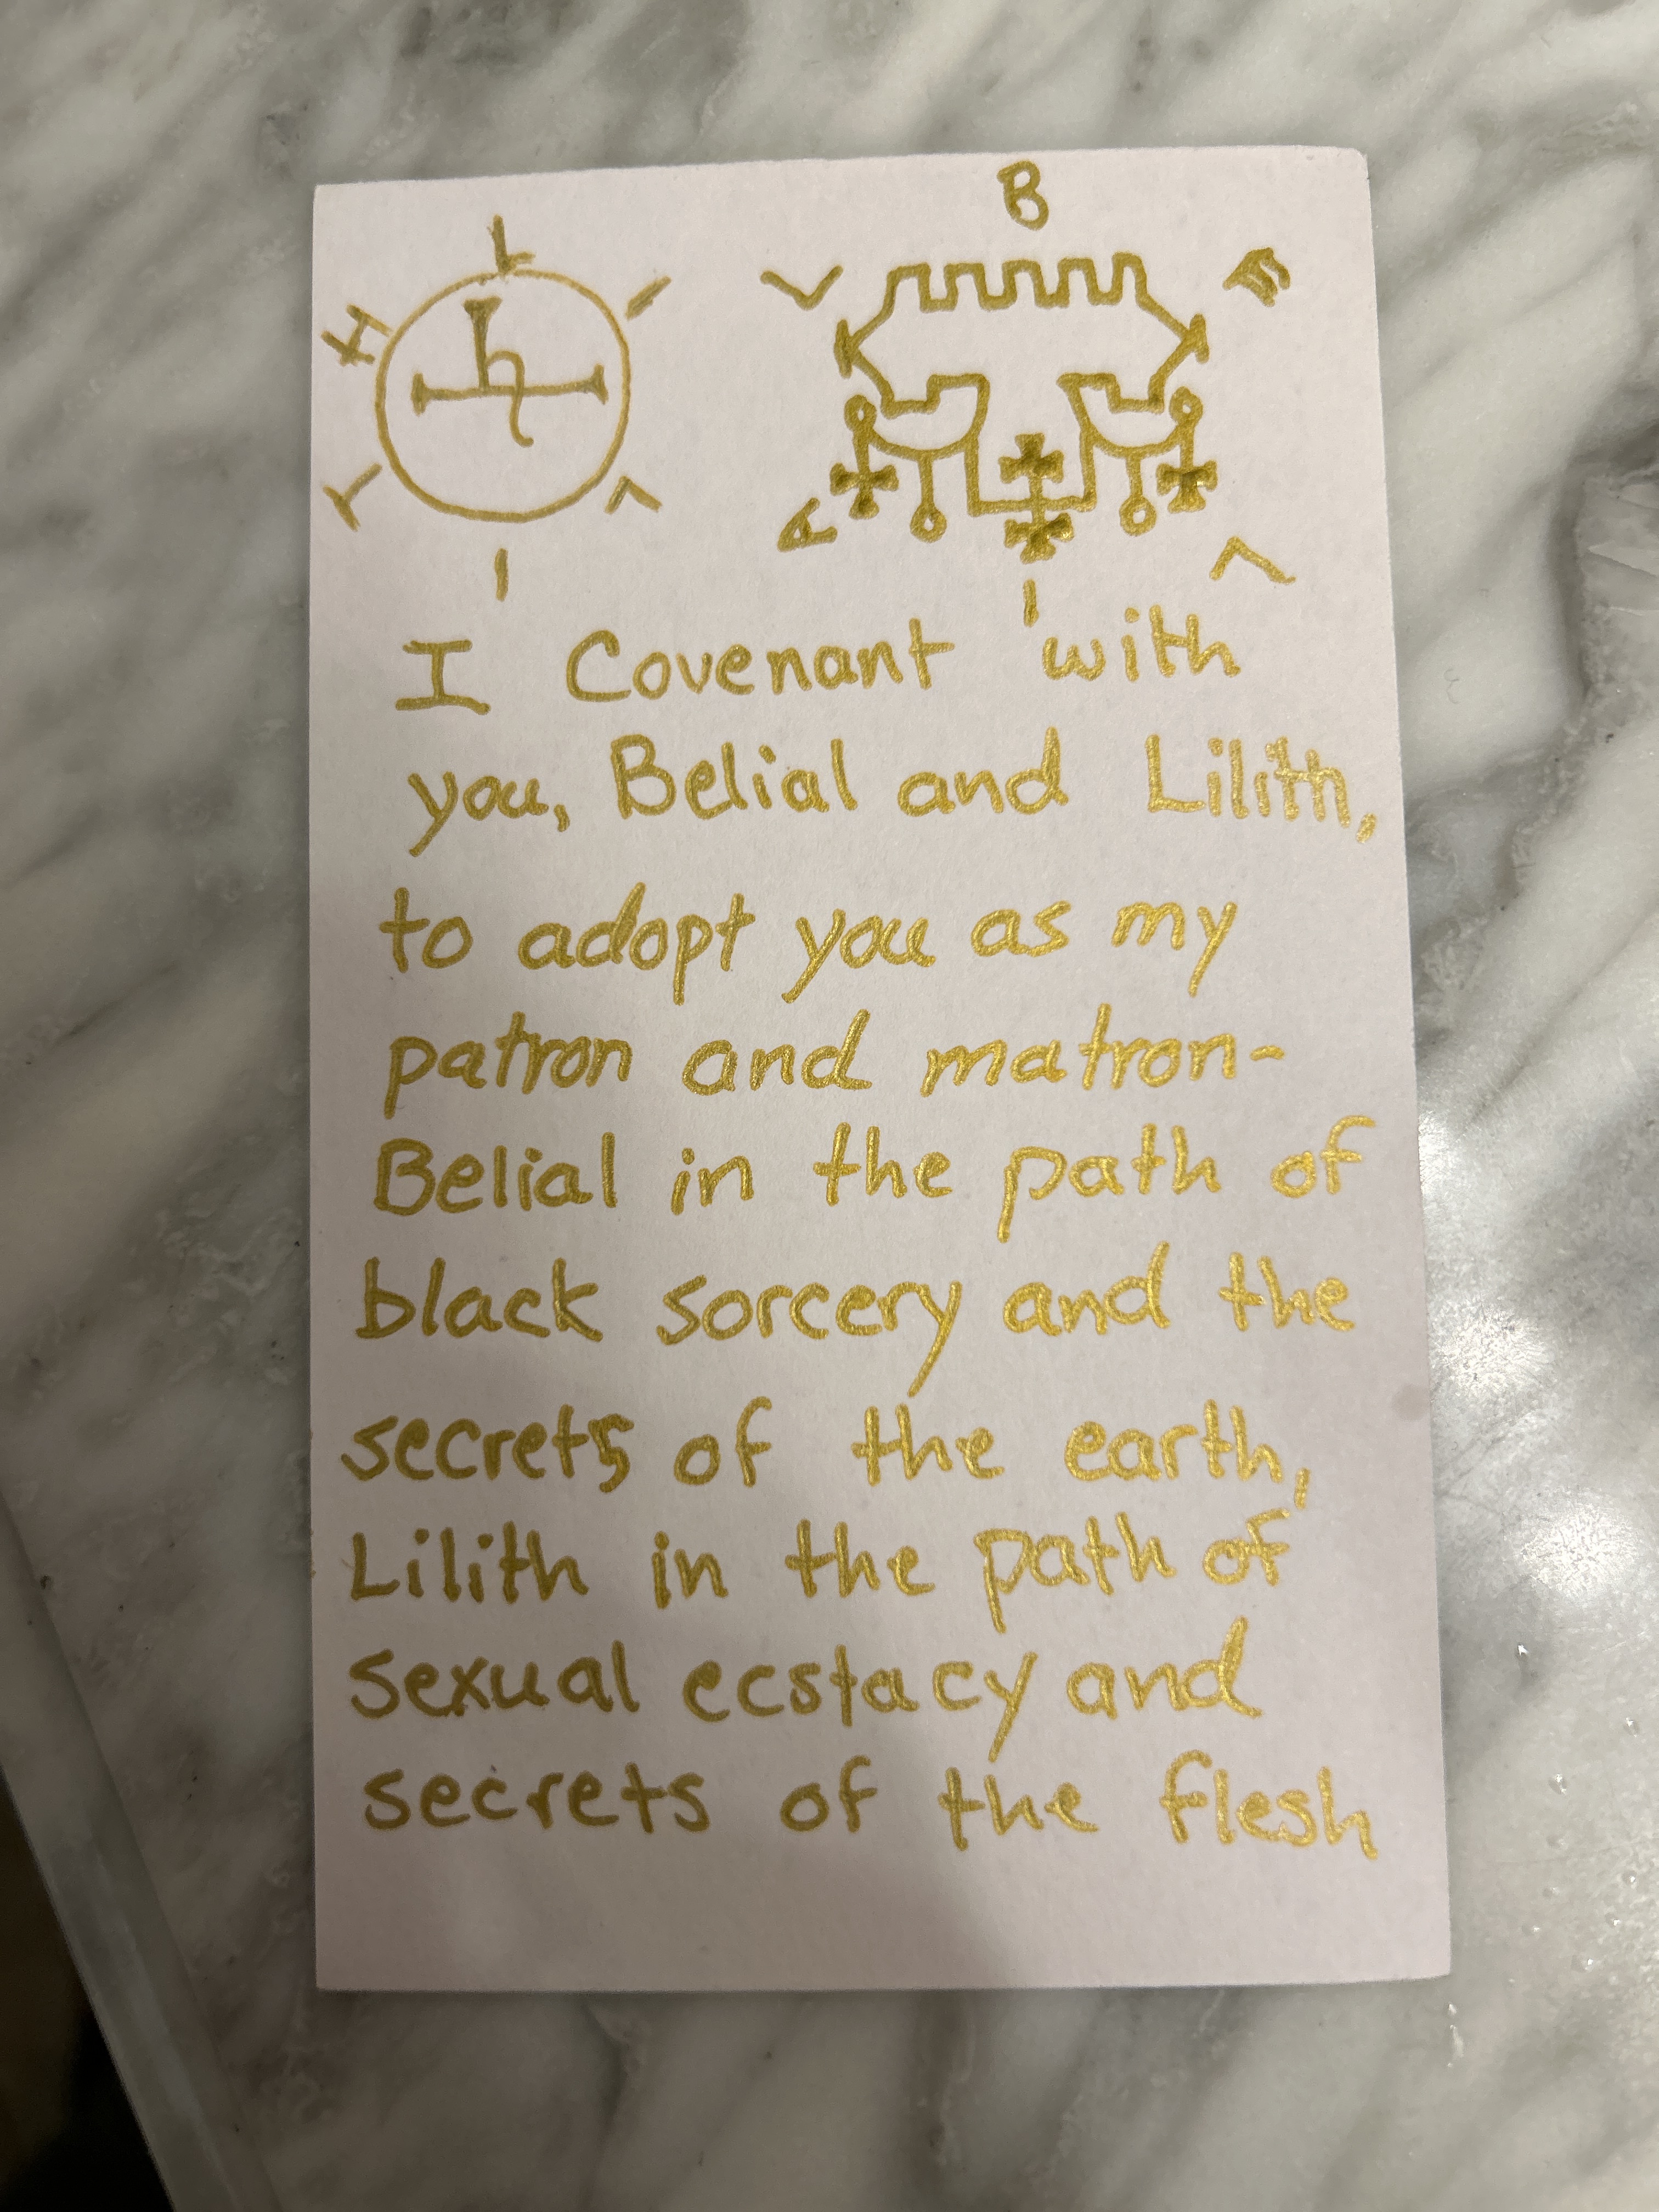 L I L I T H
B E L I A L
I Covenant with
you, Belial and Lilith,
to adopt you as my
patron and matron-
Belial in the path of
black sorcery and the
secrets of the earth,
Lilith in the path of
sexual ecstacy and
secrets of the flesh